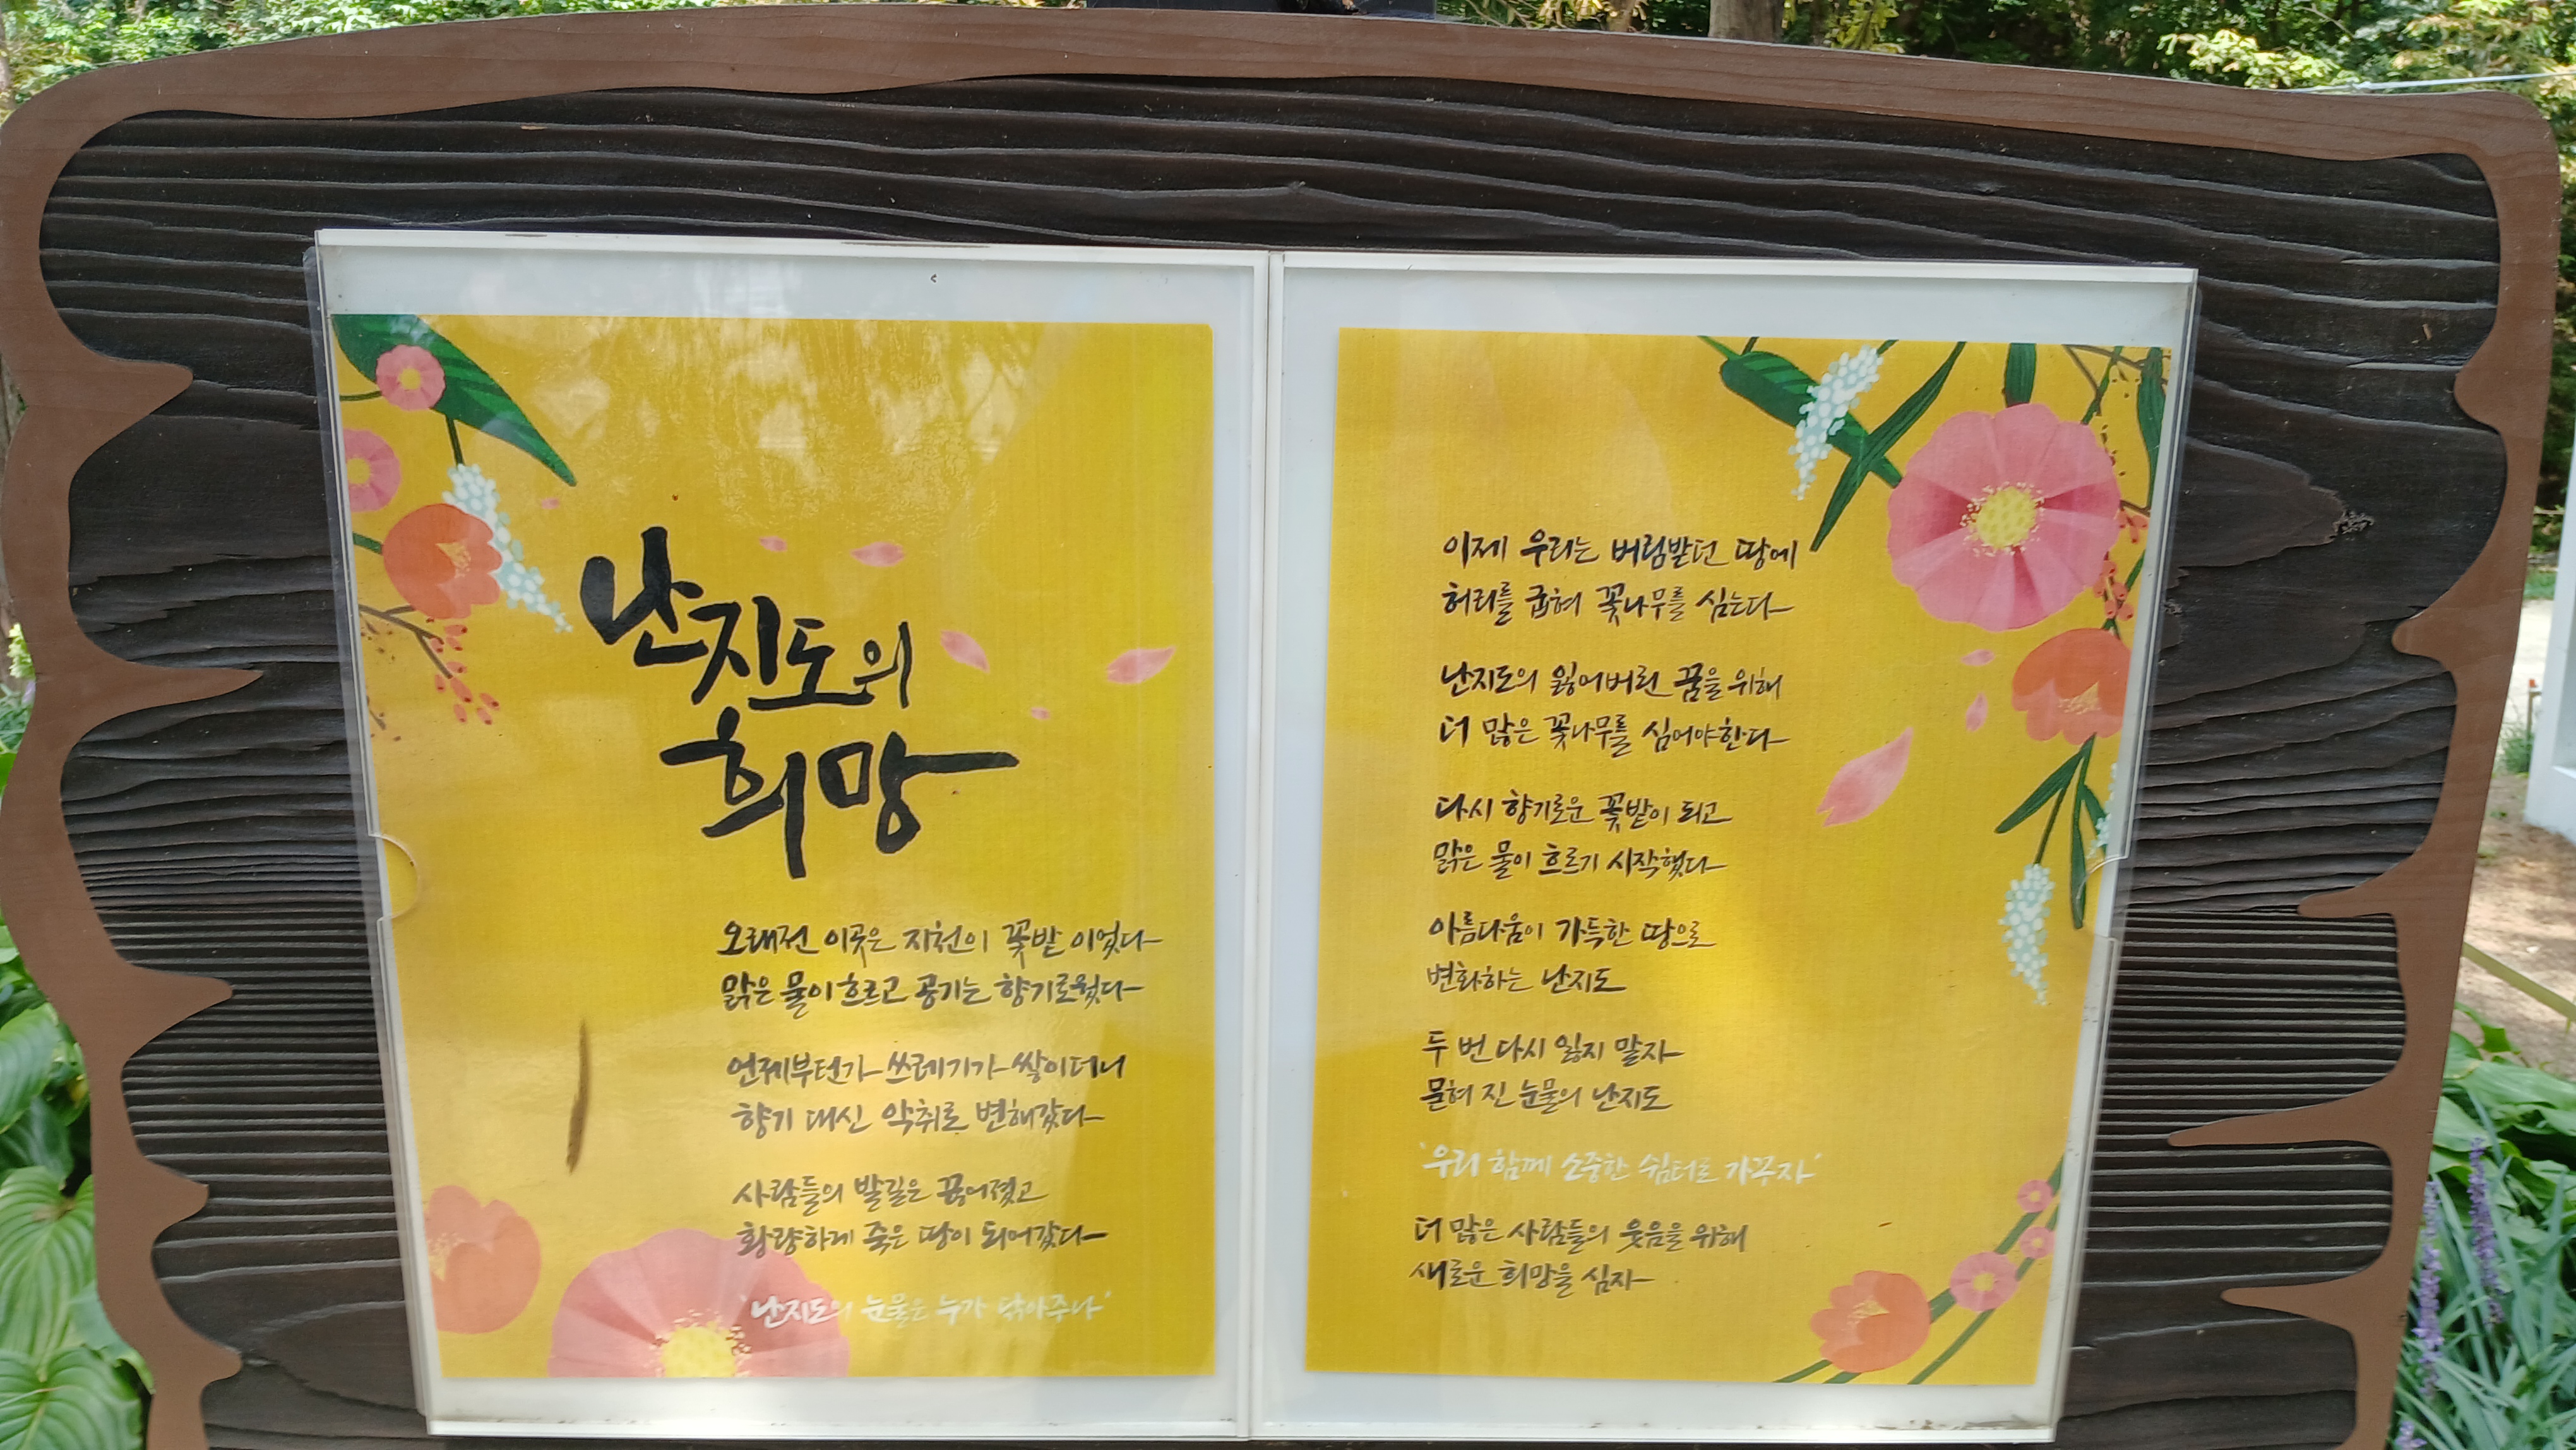 난지도의
희망
오래전 이곳은 지천이 꽃밭 이었다
맑은 물이 흐르고 공기는 향기로웠다
언제부턴가 쓰레기가 쌓이더니
향기 대신 악취로 변해갔다
사람들의 발길은 끊어졌고
황량하게 죽은 땅이 되어갔다
'난지도의 눈물은 누가 닦아주나'
이제 우리는 버림받던 땅에
허리를 굽혀 꽃나무를 심는다
난지도의 잃어버린 꿈을 위해
더 많은 꽃나무를 심어야한다
다시 향기로운 꽃밭이 되고
맑은 물이 흐르기 시작했다
아름다움이 가득한 땅으로
변화하는 난지도
두 번 다시 잃지 말자
묻혀 진 눈물의 난지도
'우리 함께 소중한 쉼터로 가꾸자'
더 많은 사람들의 웃음을 위해
새로운 희망을 심자